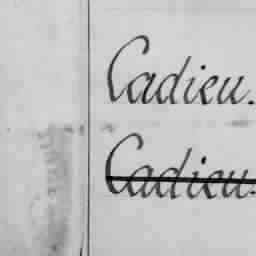 Cadieu.
Cadieu.